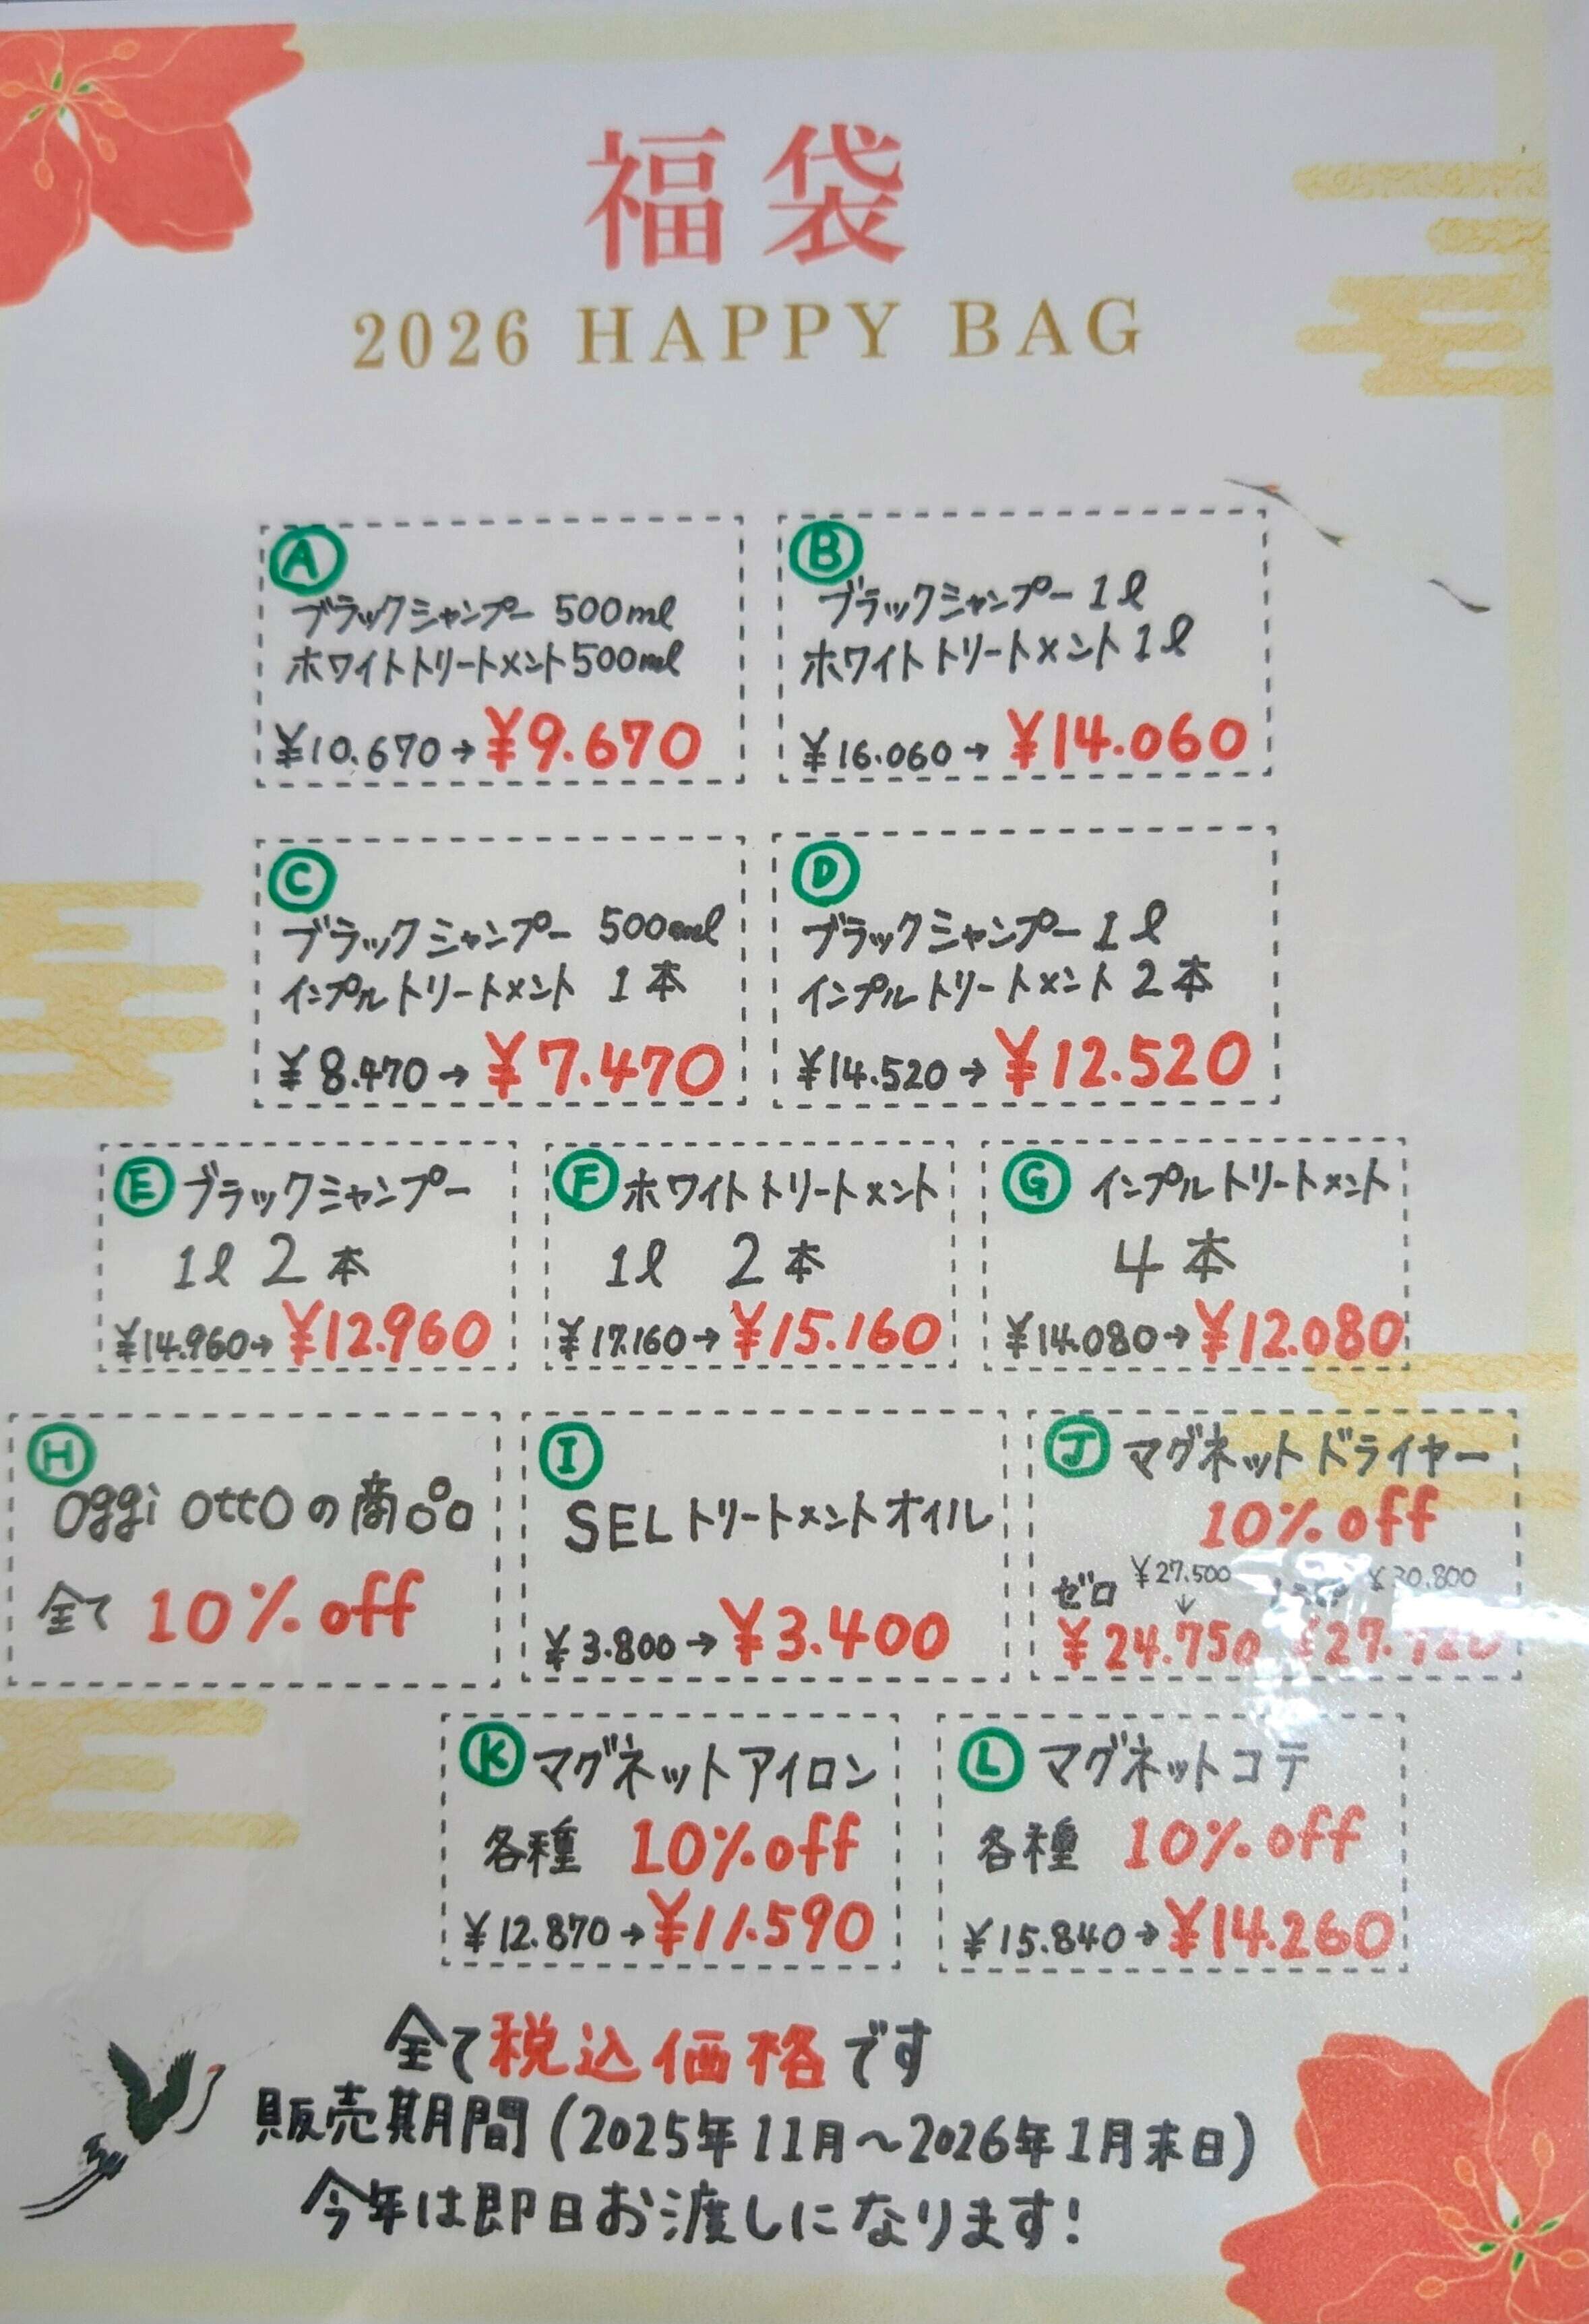 福袋
2026 HAPPY BAG
A
ブラックシャンプー 500ml
ホワイトトリートメント500ml
¥10.670→¥9.670
B
ブラックシャンプー 1ℓ
ホワイトトリートメント 1ℓ
¥16.060→¥14.060
C
ブラックシャンプー 500ml
インプルトリートメント 1本
¥8.470→¥7.470
D
ブラックシャンプー 1ℓ
インプルトリートメント 2本
¥14.520→¥12.520
E ブラックシャンプー
1ℓ 2本
¥14.960→¥12.960
F ホワイトトリートメント
1ℓ 2本
¥17.160→¥15.160
G インプルトリートメント
4本
¥14.080→¥12.080
H
oggi ottoの商品
全て 10%off
I
SELトリートメントオイル
¥3.800→¥3.400
J マグネットドライヤー
10%off
ゼロ ¥27.500 ¥30.800
↓
¥24.750 ¥27.720
K マグネットアイロン
各種 10%off
¥12.870→¥11.590
L マグネットコテ
各種 10%off
¥15.840→¥14.260
全て税込価格です
販売期間(2025年11月～2026年1月末日)
今年は即日お渡しになります!